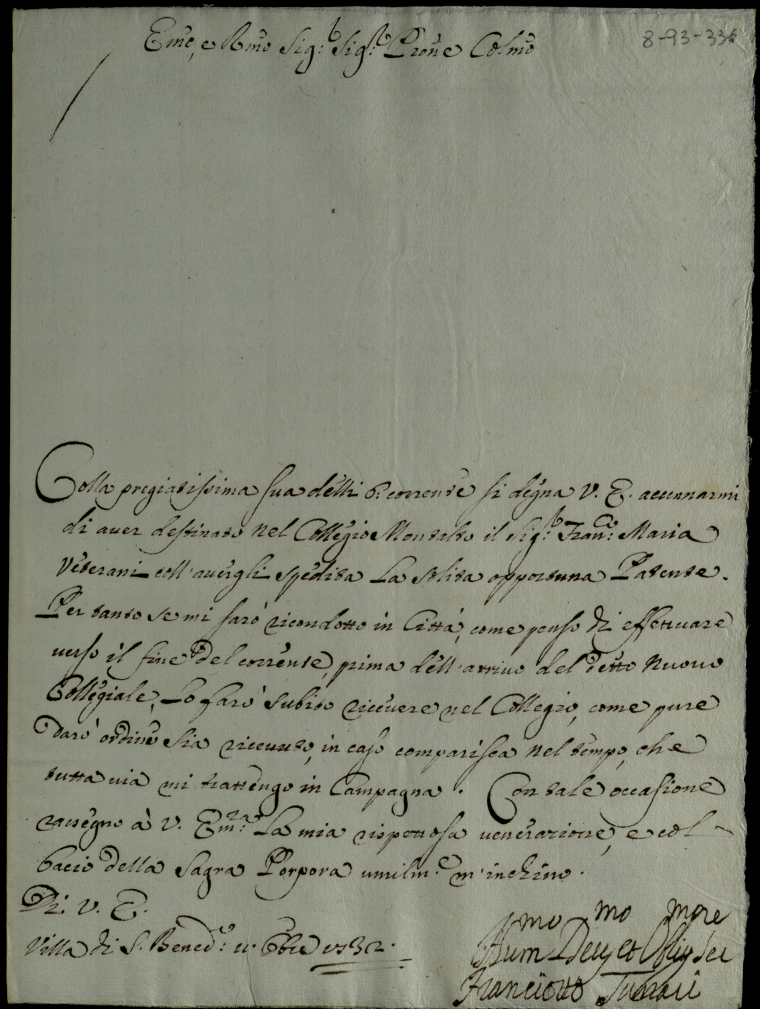 8-93-336
Emo, e Rmo Sig:r Sig:r Prone Colmo
Colla pregiatissima sua delli 6 corrente si degna V. E. accennarmi
di aver destinato nel Collegio Montalto il Sig:r Fran:co Maria
Veterani coll'avergli spedita la solita opportuna Patente.
Per tanto se mi sarò ricondotto in Città, come penso di effettuare
verso il fine del corrente, prima dell'arrivo del detto nuovo
Collegiale, lo farò subito ricevere nel Collegio, come pure
darò ordine sia ricevuto, in caso comparisca nel tempo, che
tutta via mi trattengo in Campagna. Con tale occasione
rassegno à V. Em:za la mia rispettosa venerazione, e col
bacio della Sagra Porpora umilm:e m'inchino.
Di V. E.
Villa di S. Bened:o 11. 8bre 1732.
Hum:mo Dev:mo et Obl:mo Ser:re
Franciotto